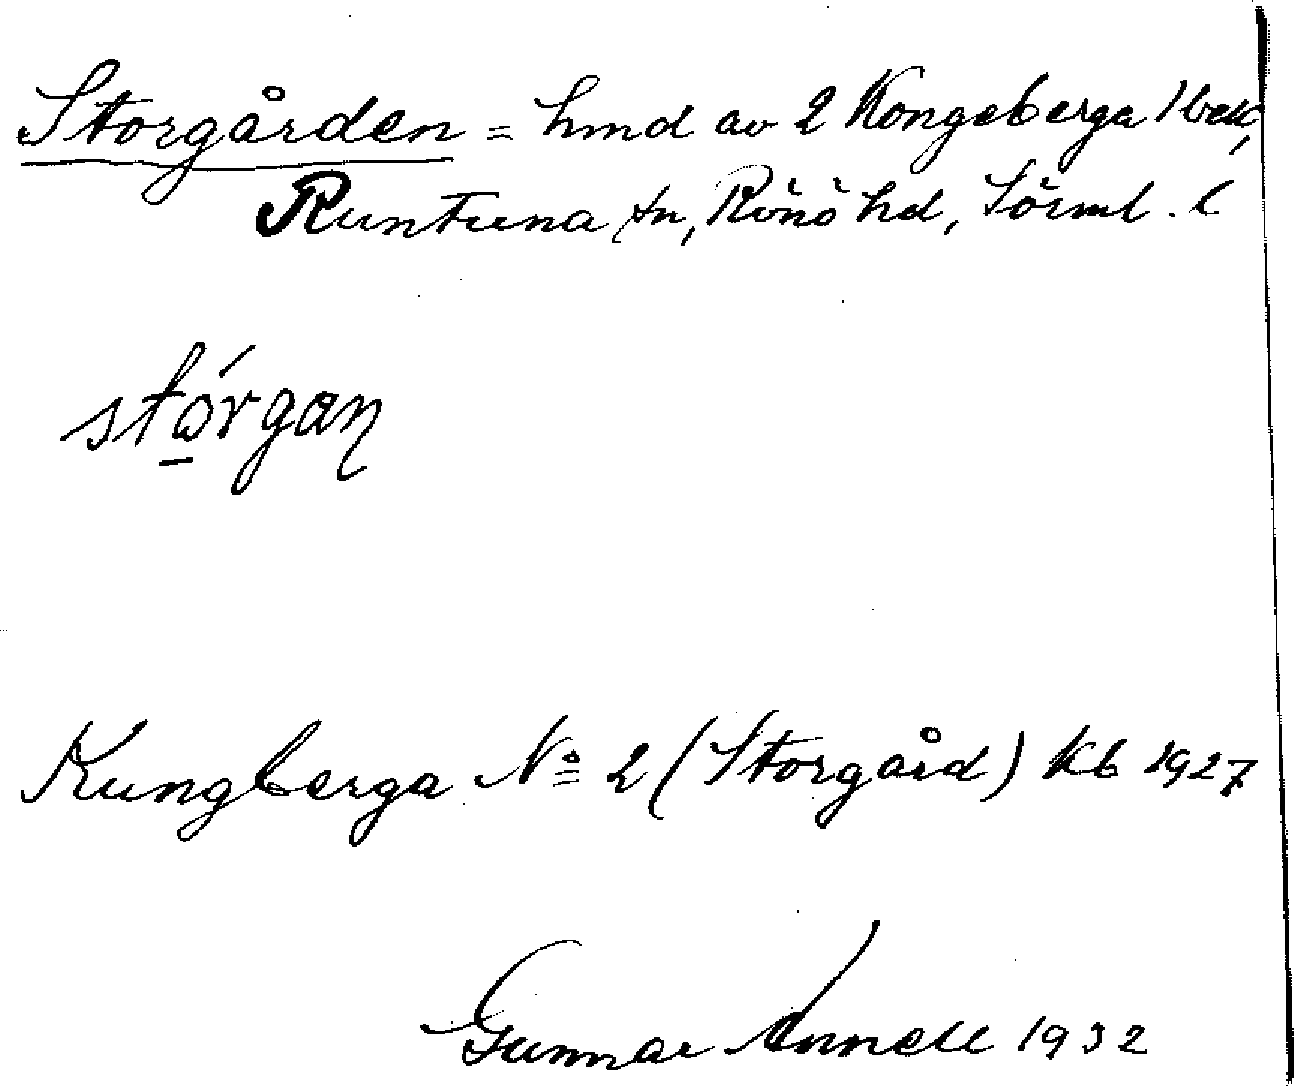 Storgården = hmd av 2 Kongeberga 1
Runtuna sn, Rönö hd, Sörml. l
stórgan
Kungberga No 2 (Storgård) Kb 1927
Gunnar Annell 1932